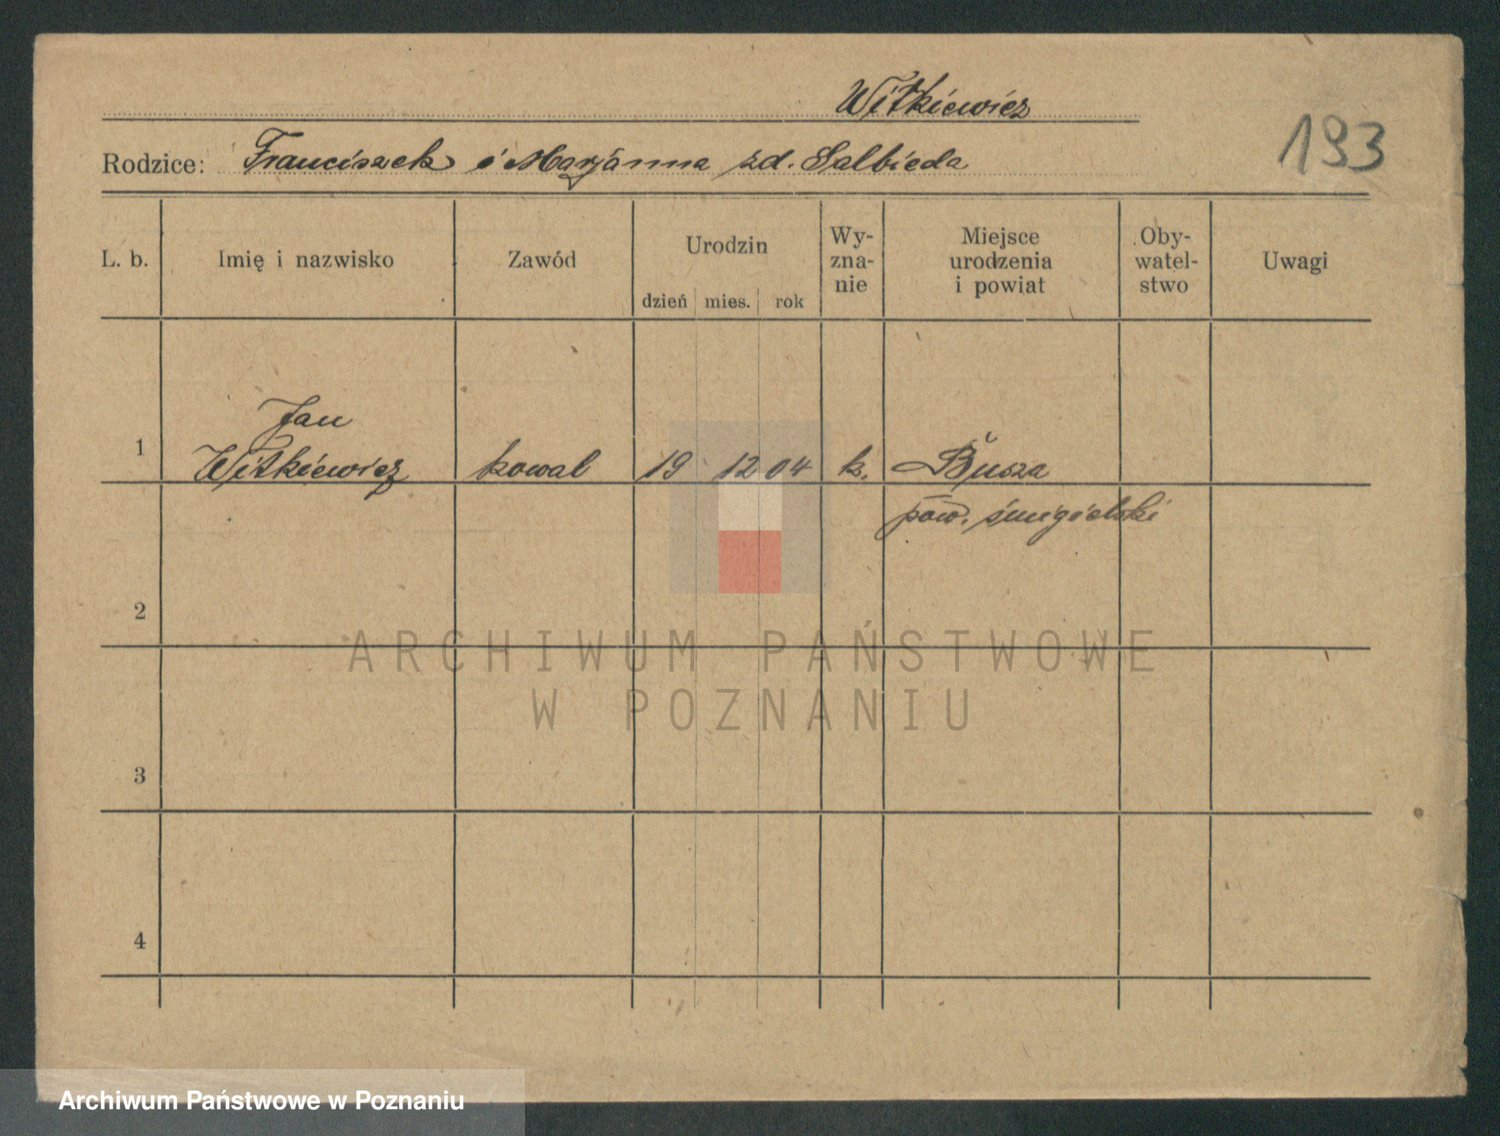 Witkiewicz
193
Rodzice: Franciszek i Marjanna zd. Salbieda
L. b. Imię i nazwisko Zawód Urodzin dzień mies. rok Wy-zna-nie Miejsce urodzenia i powiat Oby-watel-stwo Uwagi
Jan
1 Witkiewicz kowal 19 12 04 k. Busza
pow. śmigielski
2
ARCHIWUM PAŃSTWOWE
W POZNANIU
3
4
Archiwum Państwowe w Poznaniu